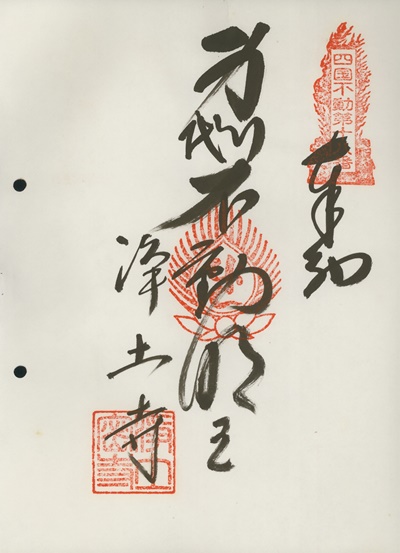 四国不動第十
奉納
身代不動明王
浄土寺